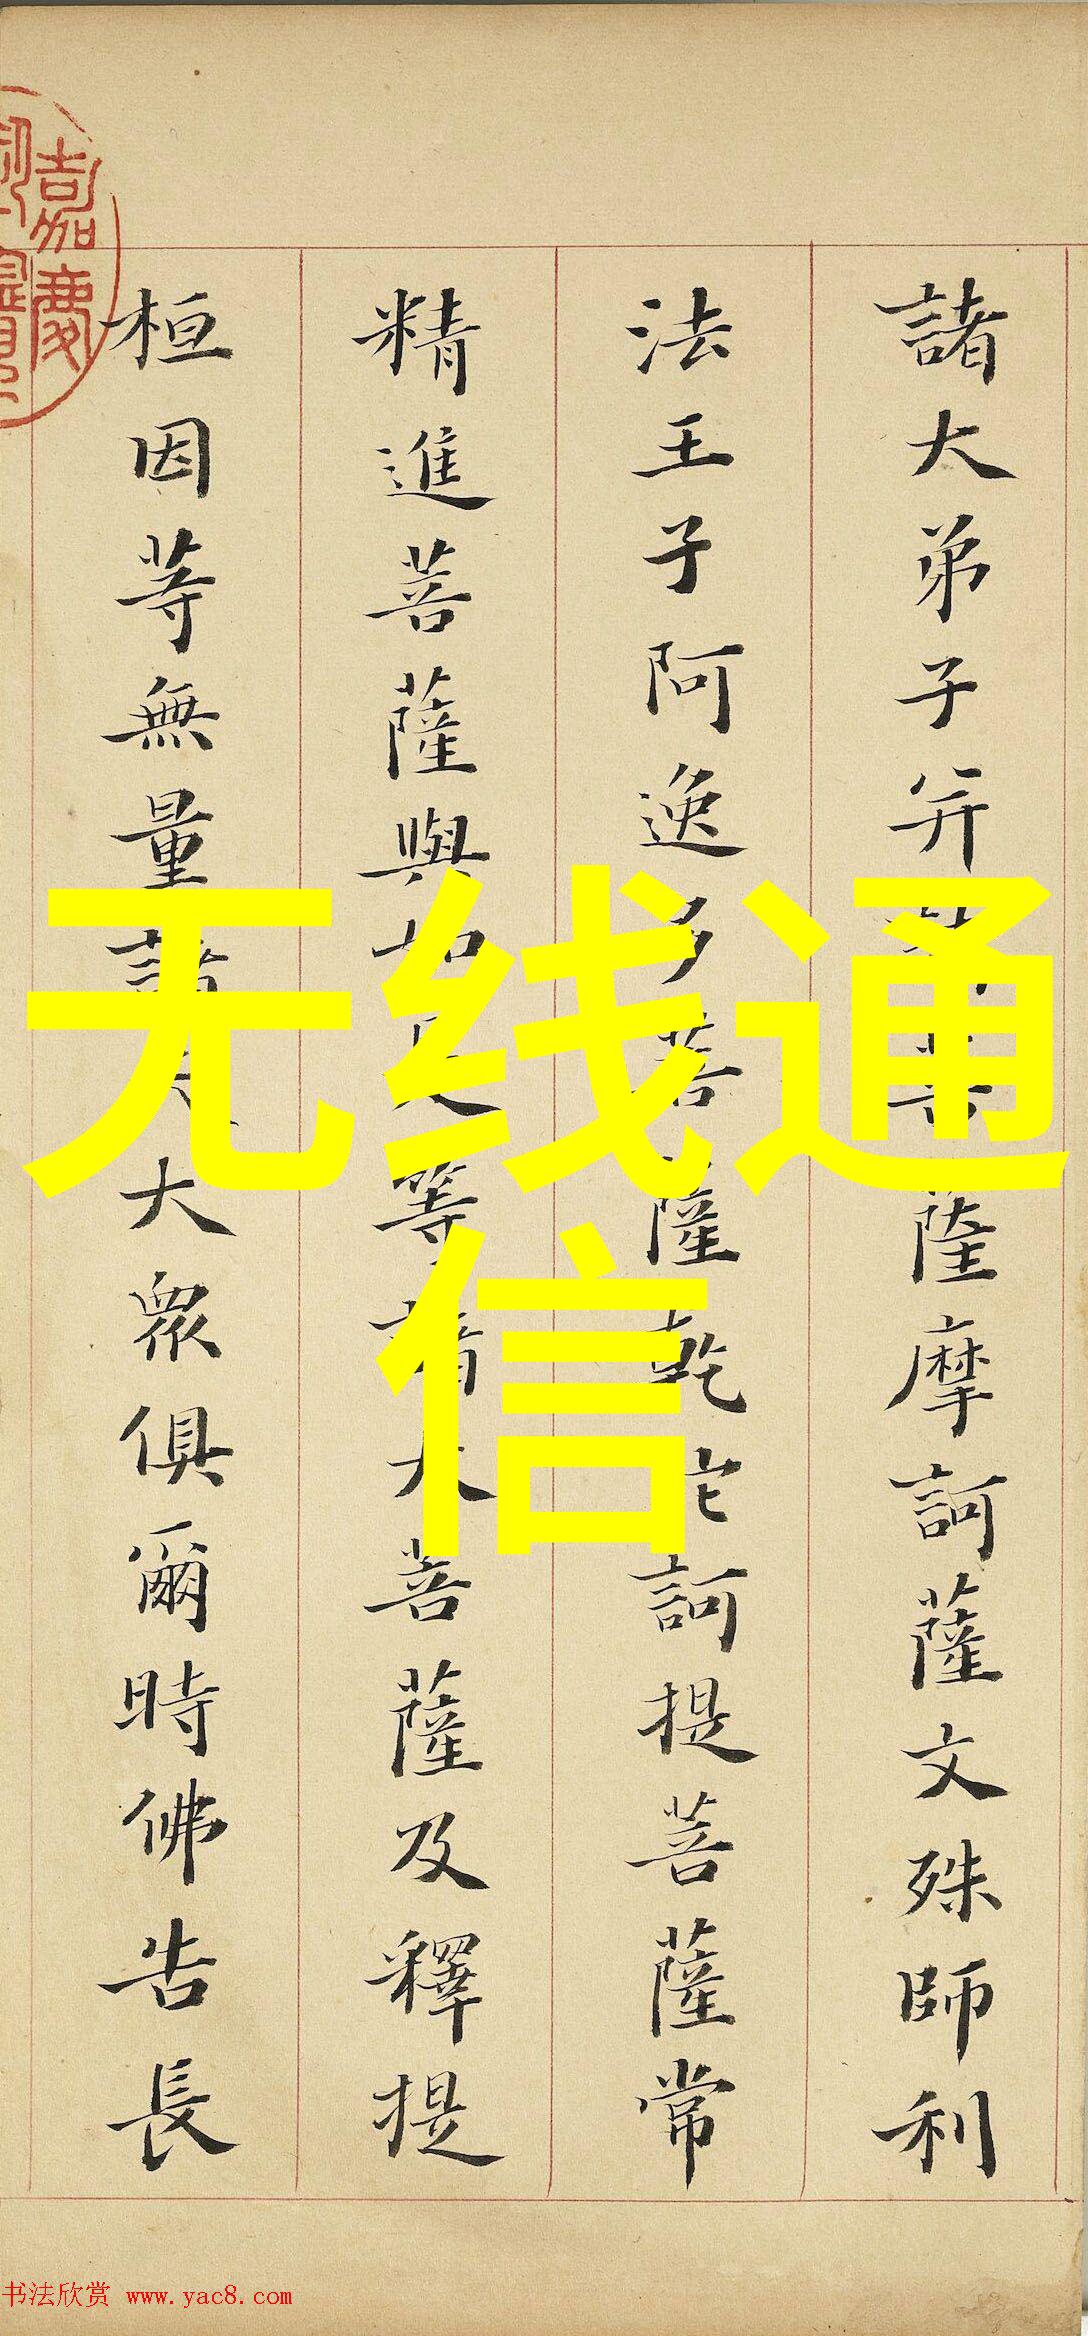 諸大弟子并諸菩薩摩訶薩文殊師利
法王子阿逸多菩薩乾陀訶提菩薩常
精進菩薩與如是等諸大菩薩及釋提
桓因等無量諸天大眾俱爾時佛告長
无线通
信
嘉慶
书法欣赏 www.yac8.com